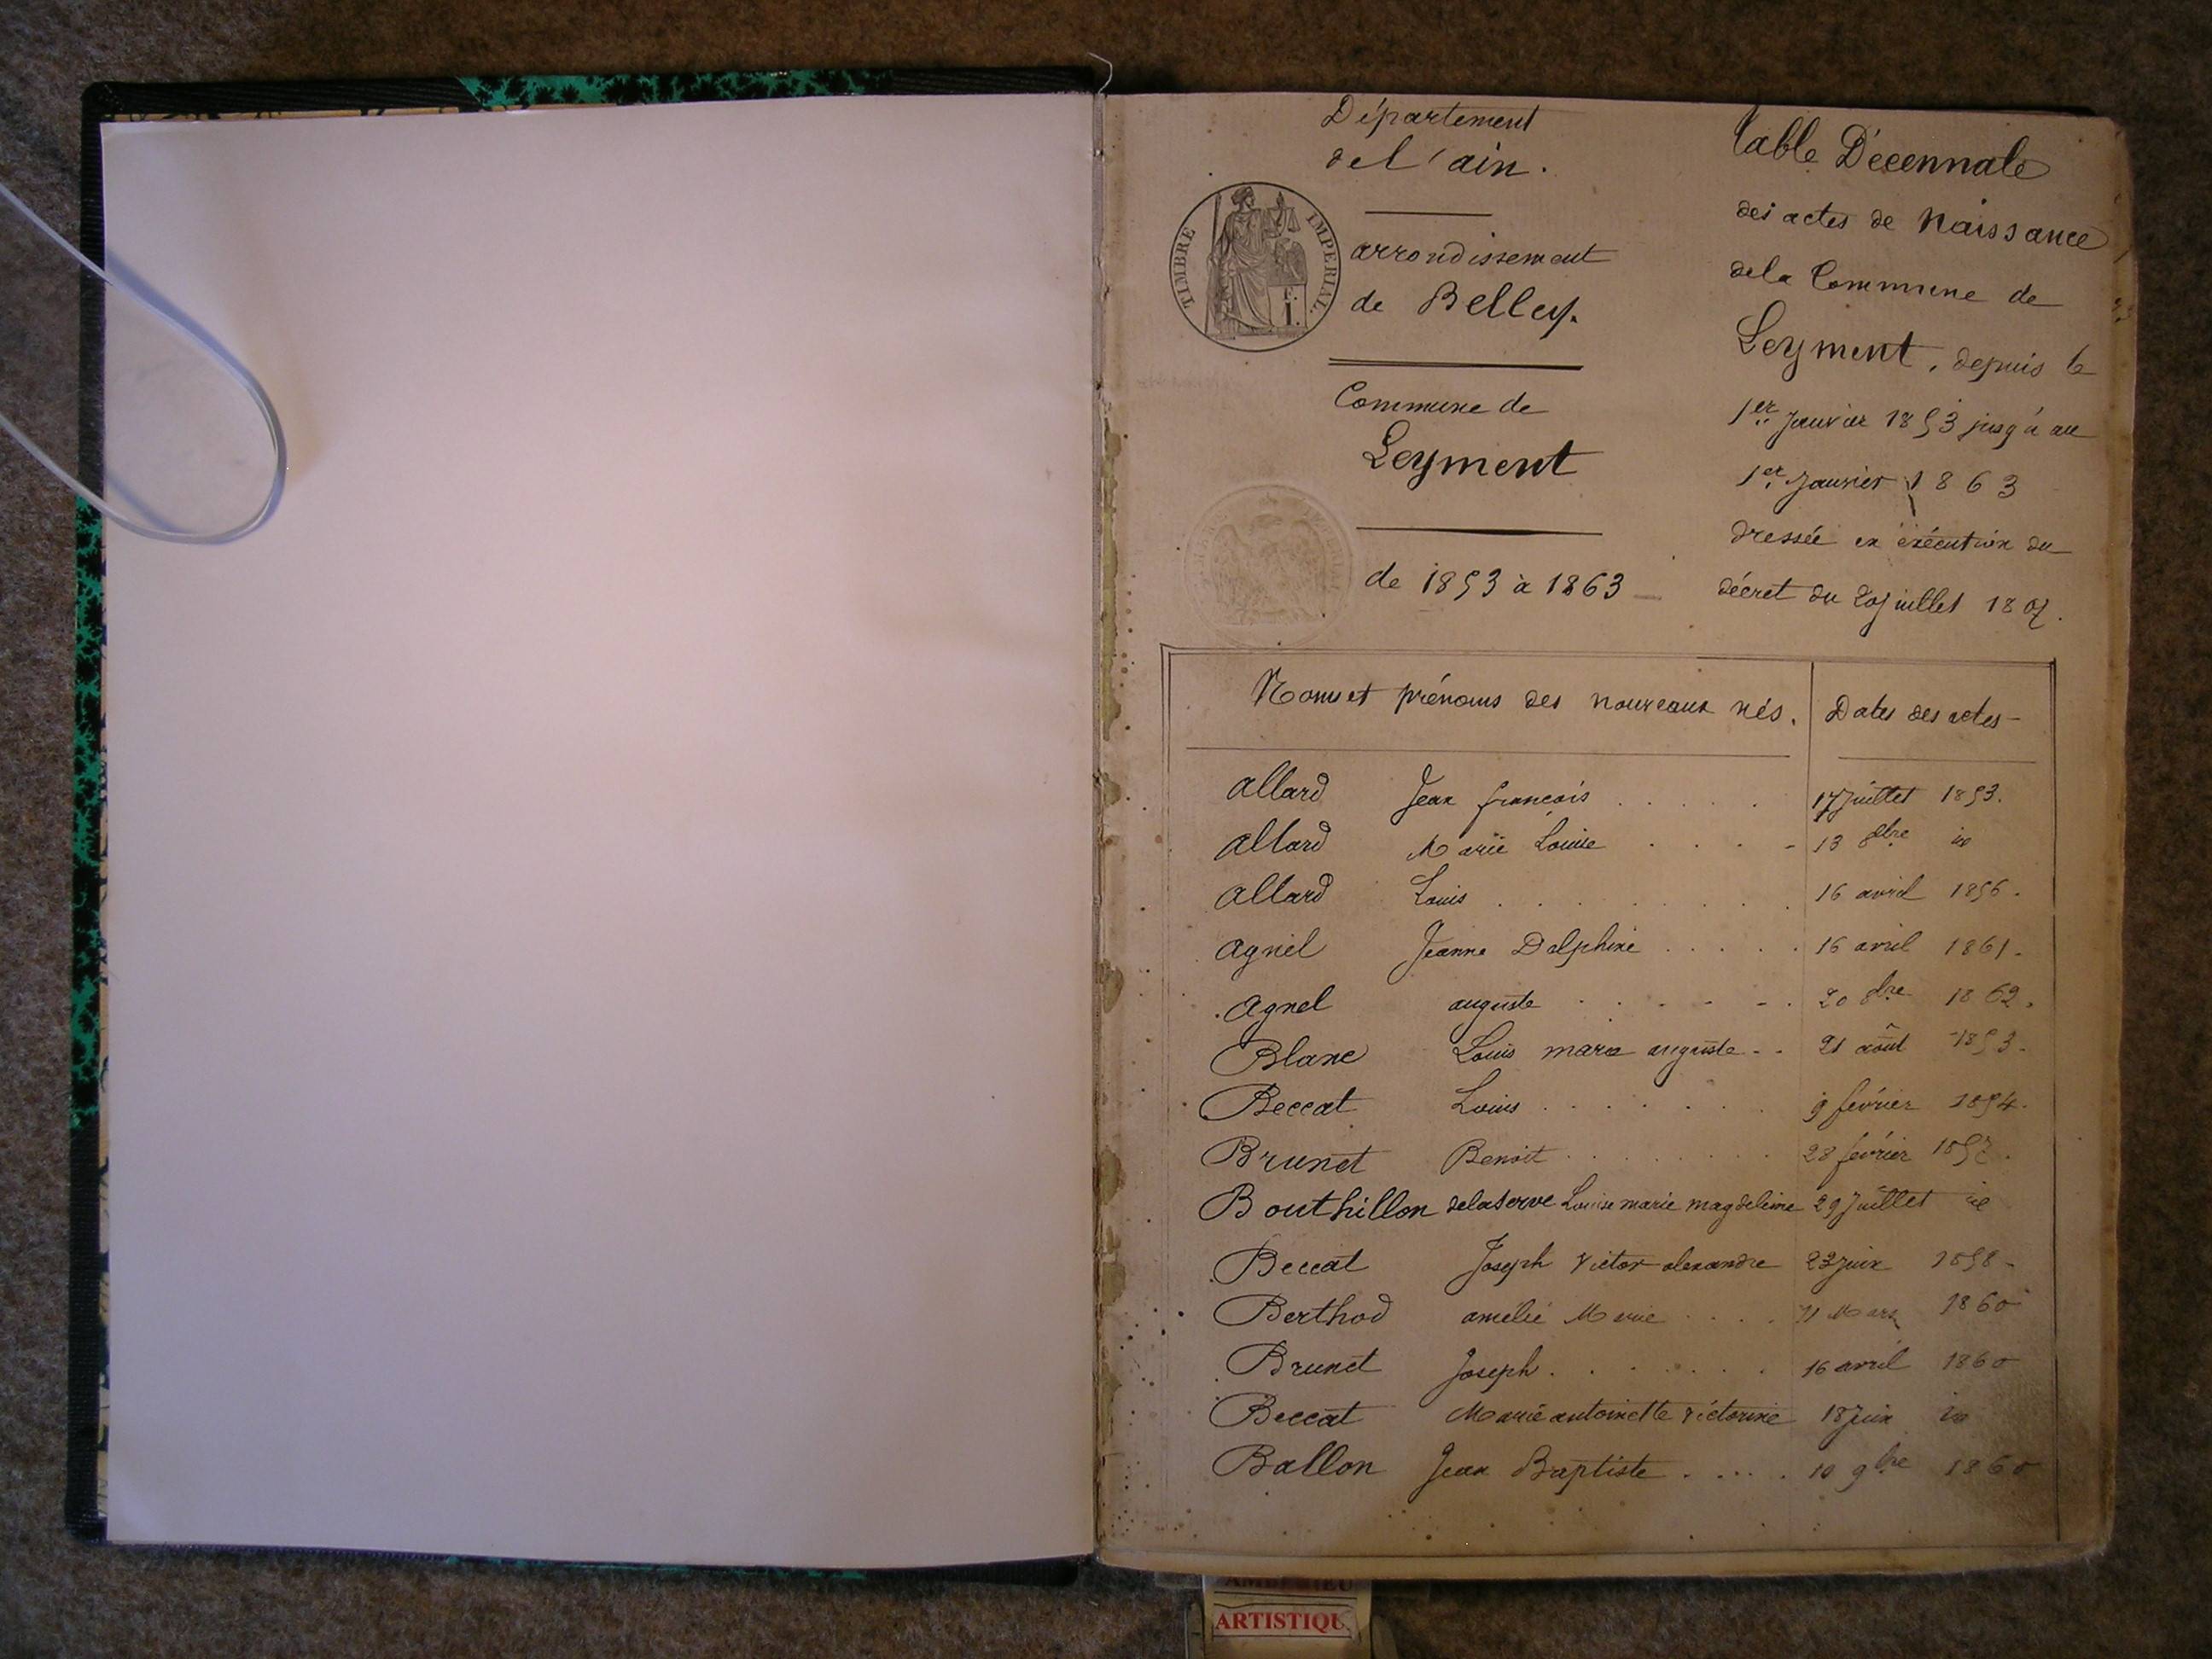 Département
de l'ain.
TIMBRE IMPERIAL
F.
1.
arrondissement
de Belley.
Commune de
Leyment
de 1853 à 1863
Table Décennale
des actes de Naissance
de la Commune de
Leyment, depuis le
1er Janvier 1853 jusqu'à au
1er Janvier 1863
dressée en exécution du
décret du 20 juillet 1807.
Noms et prénoms des nouveaux nés. Dates des actes
allard Jean françois 17 Juillet 1853.
allard Marie Louise 13 8bre id
allard Louis 16 avril 1856.
agnel Jeanne Delphine 16 avril 1861.
agnel auguste 20 8bre 1862.
Blanc Louis marie auguste 21 août 1853.
Beccat Louis 9 février 1854.
Brunet Benoit 28 février
Bouthillon delaserve Louise marie magdeleine 29 Juillet id
Beccat Joseph Victor alexandre 23 juin 1858
Berthod amélie Marie Mars 1860
Brunet Joseph 16 avril 1860
Beccat Marie antoinette victorine 18 Juin id
Ballon Jean Baptiste 10 9bre 1860
ARTISTIQU